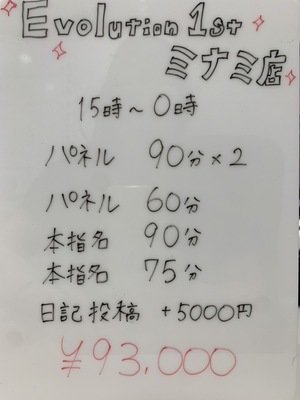 Evolution 1st
ミナミ店
15時～0時
パネル 90分×2
パネル 60分
本指名 90分
本指名 75分
日記投稿 +5000円
¥93,000